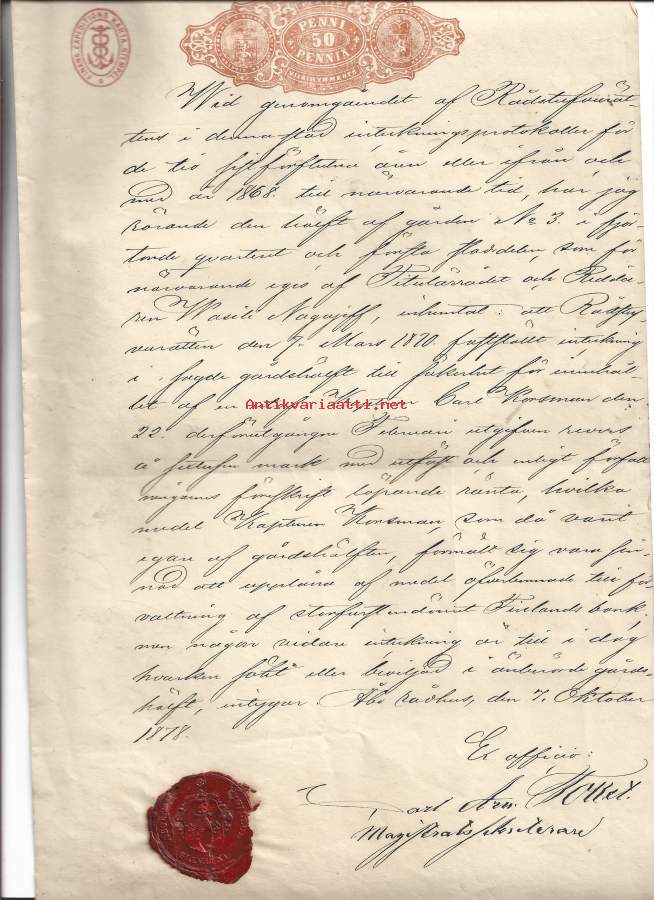 PENNI
50
PENNIÄ
Wid genomgåendet af Rådstufvurät-
tens i denna stad inteckningsprotokoller för
de tio sistförflutna åren eller ifrån och
med år 1868. till närwarande tid, har jag
rörande den hälft af gården No 3. i fjor-
tonde qvarteret och första stadsdelen, som för
närwarande eges af Titulärrådet och Redda-
ren Wasili Nagujeff, inhemtat: att Rådstu-
vurätten den 7. Mars 1870. fastställt inteckning
i sagde gårdshälft till säkerhet för innehål-
let af en af Kaptenen Carl Korsman den
22. derförutgångne Februari utgifven revers
å mark med utfäst och enligt författ-
ningarnes föreskrift löpande ränta, hvilka
medel Kaptenen Korsman, som då varit
egare af gårdshälften, förmält sig vara sin-
nad att upplåna af medel öfverlemnade till för-
valtning af storfurstendömet Finlands bank,
men någon vidare inteckning är till i dag
hvarken sökt eller beviljad i änberörde gårds-
hälft, intygar. Åbo rådhus, den 7. Oktober
1878.
Ex officio:
Carl Arn.
Magistratssekreterare
Antikvariaatti.net